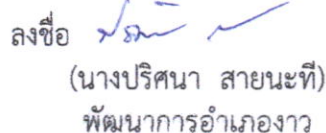 ลงชื่อ
(นางปริศนา สายนะที)
พัฒนาการอำเภองาว